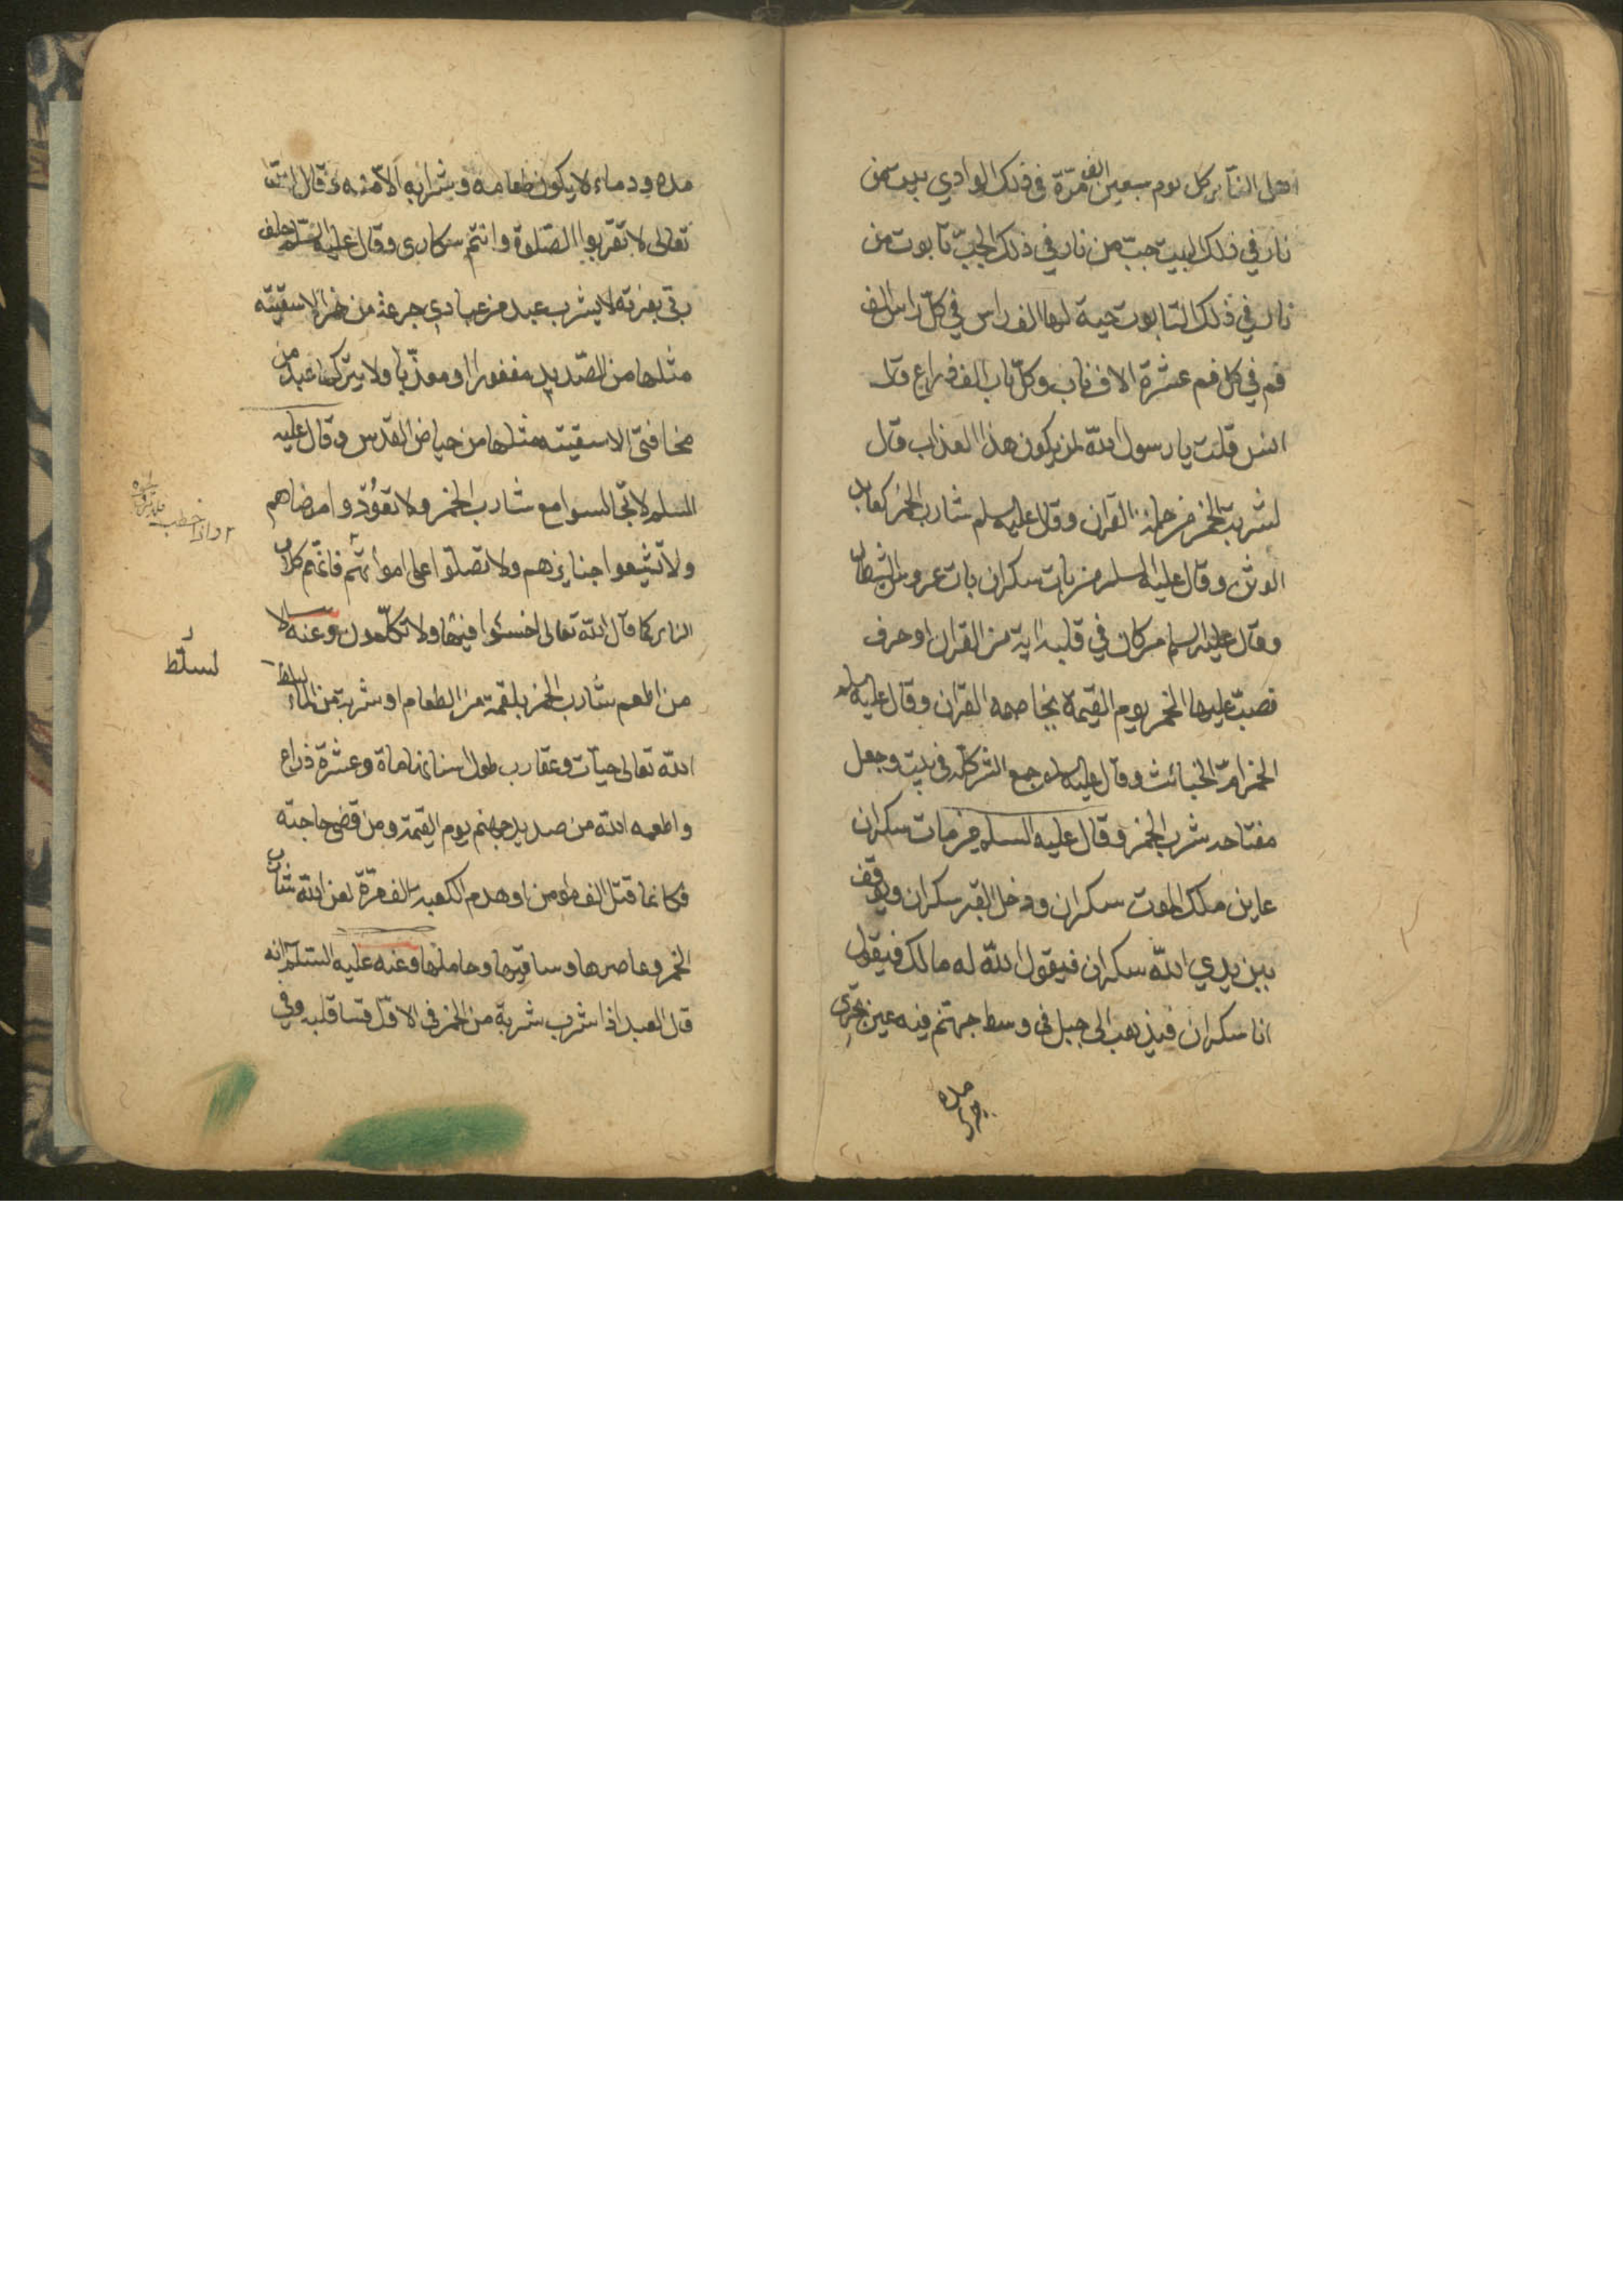 اهل النار كل يوم سبعين الف مرة في ذلك الوادي بيت من
نار في ذلك البيت جب من نار في ذلك الجب تابوت من
نار في ذلك التابوت حية لها الف راس في كل راس الف
فم في كل فم عشرة الاف ناب وكل ناب الف ذراع قال
انس قلت يا رسول الله لمن يكون هذا العذاب قال
لشربة الخمر من حملة القران وقال عليه سلم شارب الخمر كعابد
الوثن وقال عليه السلم من بات سكران بات عروس الشيطان
وقال عليه السلم من كان في قلبه اية من القران او حرف
فصب عليها الخمر يوم القيمة يخاصمه القران وقال عليه سلم
الخمر ام الخبائث وقال عليه سلم جمع الشر كله في بيت وجعل
مفتاحه شرب الخمر وقال عليه السلم من مات سكران
عاين ملك الموت سكران ودخل القبر سكران ويوقف
بين يدي الله سكران فيقول الله له مالك فيقول
انا سكران فيذهب الى جبل في وسط جهنم فيه عين تجري
مده
مده ودماء لا يكون طعامه وشرابه الا منه وقال الله
تعالى لا تقربوا الصلوة وانتم سكارى وقال عليه السلم حلف
ربي بعزته لا يشرب عبد من عبادي جرعة من خمر الا سقيته
مثلها من الصديد مغفورا او معذبا ولا يتركها عبد من
مخافتي الا سقيته مثلها من حياض القدس وقال عليه
السلم لا تجالسوا مع شارب الخمر ولا تعودوا مرضاهم
ولا تشيعوا جنايزهم ولا تصلوا على امواتهم فانهم كلاب
النار كما قال الله تعالى اخسئوا فيها ولا تكلمون وعنه
من اطعم شارب الخمر بلقمة من الطعام او شربة من الماء سلط
الله تعالى حيات وعقارب طول اسنانها ماة وعشرة ذراع
واطعمه الله من صديد جهنم يوم القيمة ومن قضى حاجته
فكانما قتل الف مؤمن او هدم الكعبة الف مرة لعن الله شارب
الخمر وعاصرها وساقيها وحاملها وعنه عليه السلم انه
قال العبد اذا شرب شربة من الخمر في الاول قسا قلبه وفي
واذا خطب
لسلط